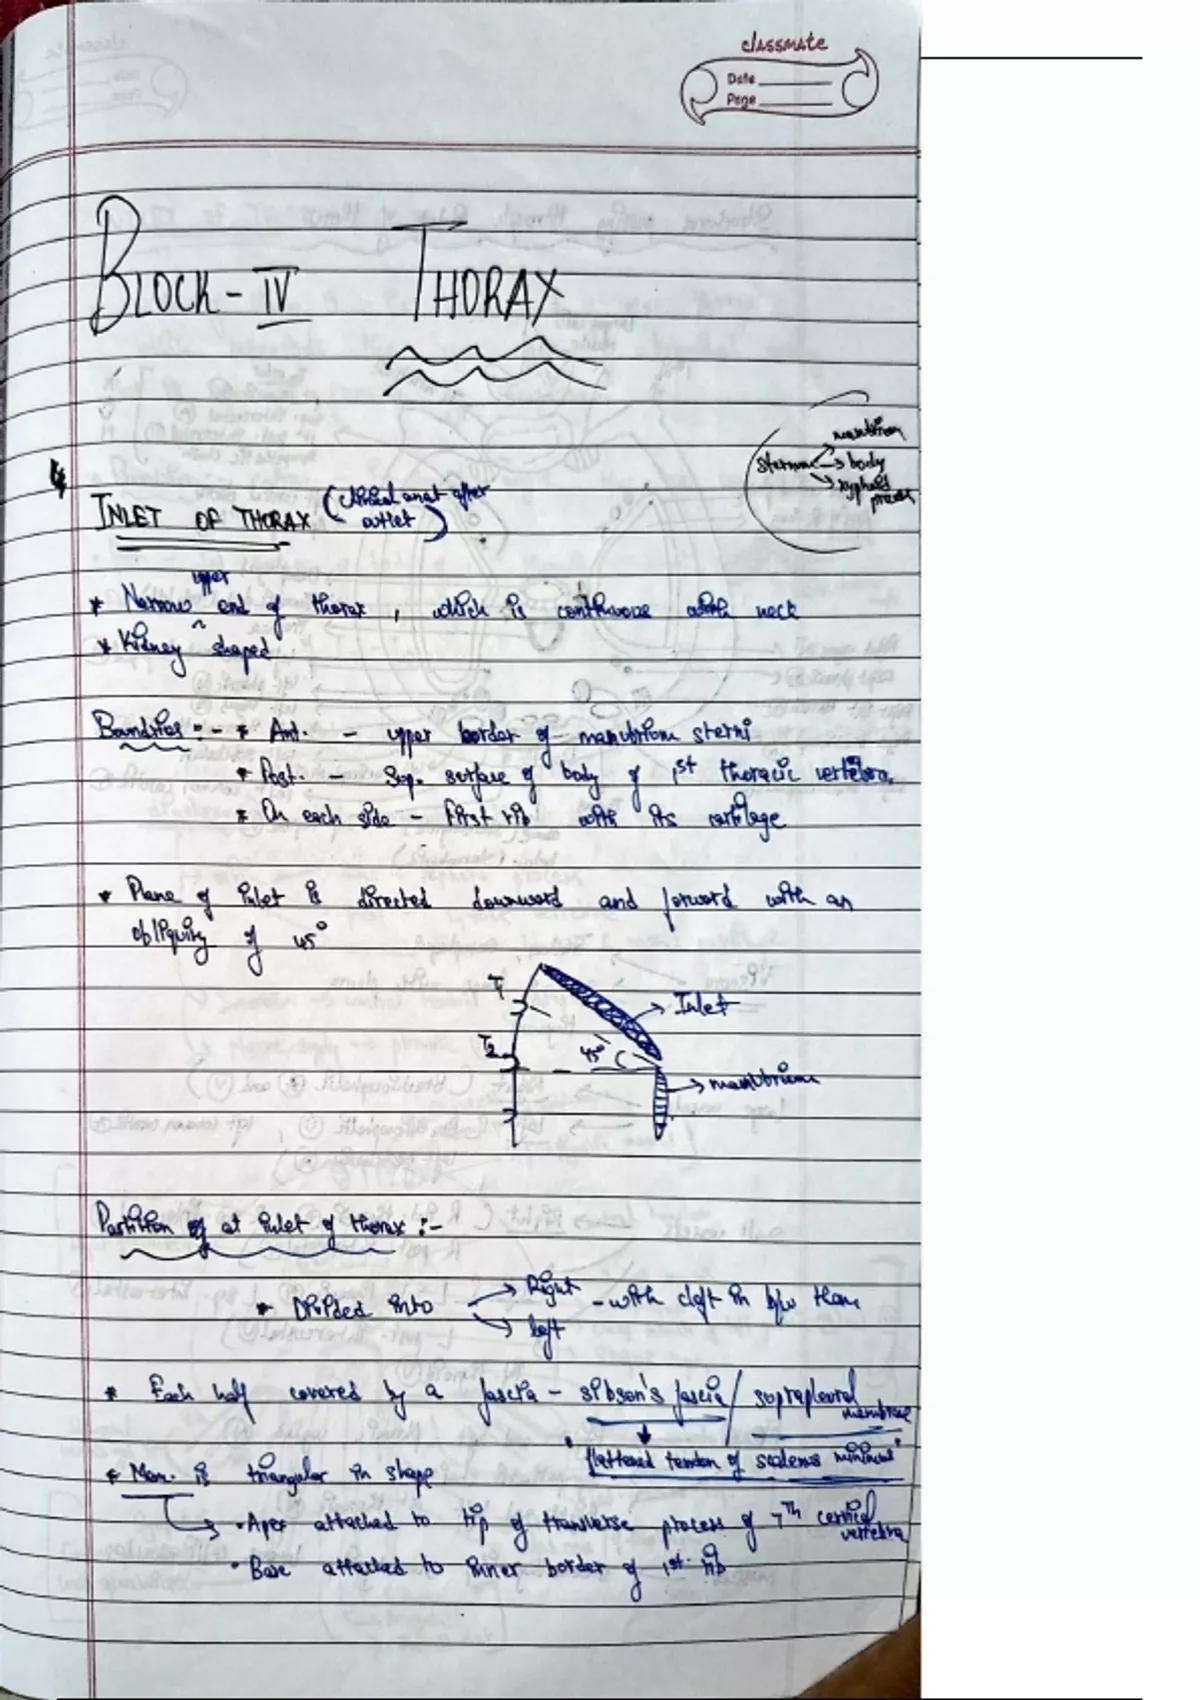 classmate
Date
Page
BLOCK - IV THORAX
sternum → manubrium
→ body
→ xyphoid process
INLET OF THORAX (clinical anat after outlet)
* Narrow upper end of thorax, which is continuous with neck
* Kidney shaped
Boundries :- * Ant. - upper border of manubrium sterni
* Post. - Sup. surface of body of 1st thoracic vertebra
* On each side - first rib with its cartilage
* Plane of inlet is directed downward and forward with an
obliquity of 45°
T1
→ Inlet
T2
45°
→ manubrium
Partition at inlet of thorax :-
* Divided into → Right - with cleft in b/w them
→ left
* Each half covered by a fascia - sibson's fascia / suprapleural membrane
"flattened tendon of scalenus minimus"
* Mem. is triangular in shape
• Apex attached to tip of transverse process of 7th cervical vertebra
• Base attached to inner border of 1st rib